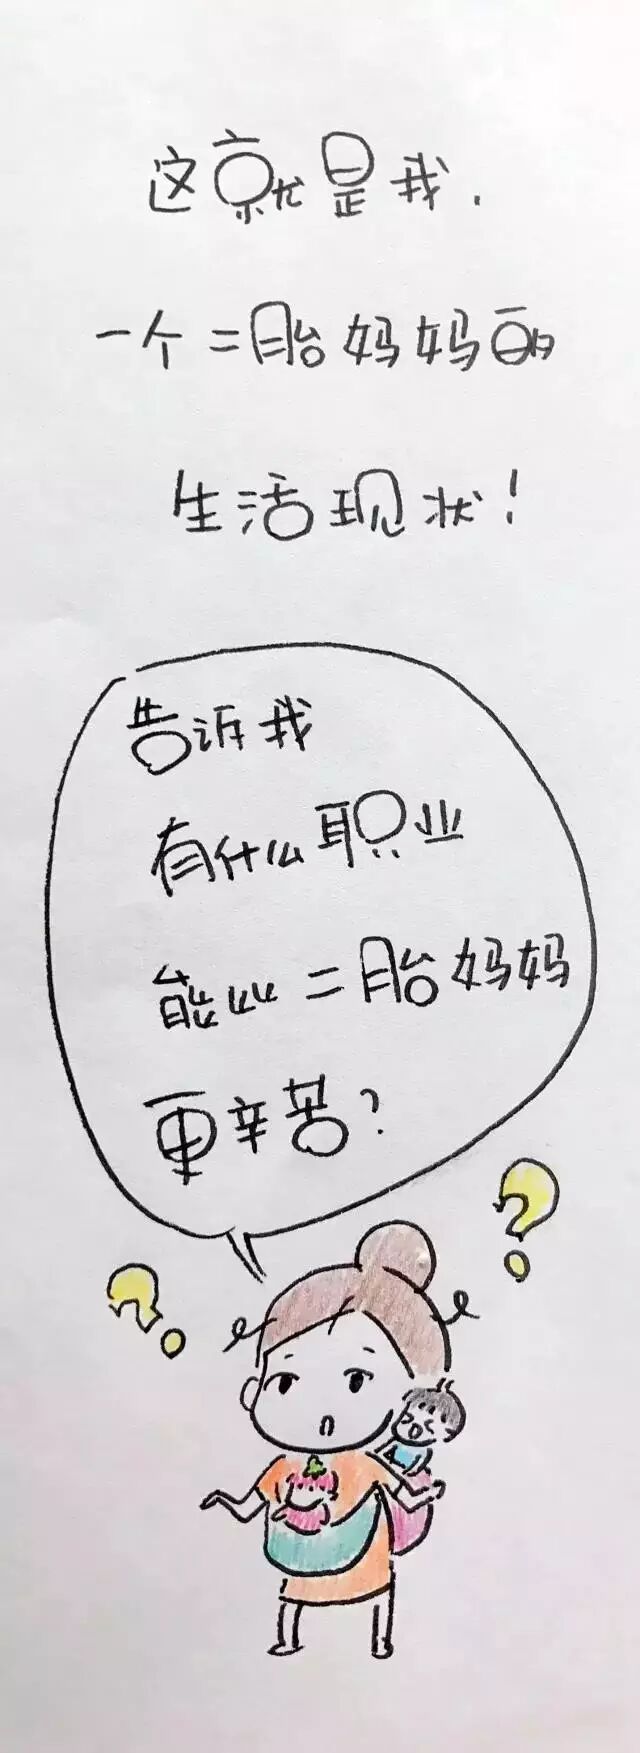 这就是我.
一个二胎妈妈的
生活现状!
告诉我
有什么职业
能比二胎妈妈
更辛苦?